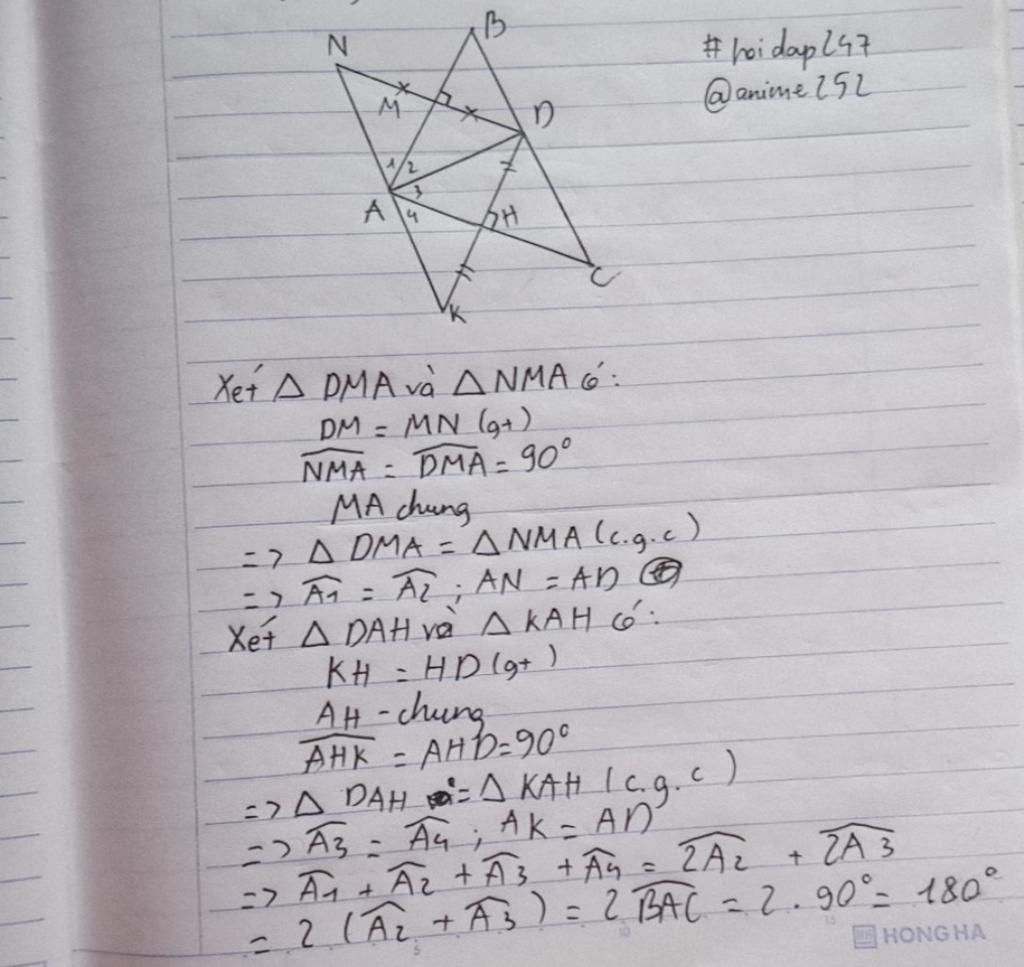 N
B
#hoidap247
@anime252
M
D
1 2
3
A 4
H
C
K
Xét △ DMA và △ NMA có:
DM = MN (gt)
\widehat{NMA} = \widehat{DMA} = 90°
MA chung
=> △ DMA = △ NMA (c.g.c)
=> \widehat{A1} = \widehat{A2} ; AN = AD
Xét △ DAH và △ KAH có:
KH = HD (gt)
AH - chung
\widehat{AHK} = AHD = 90°
=> △ DAH = △ KAH (c.g.c)
=> \widehat{A3} = \widehat{A4} ; AK = AD
=> \widehat{A1} + \widehat{A2} + \widehat{A3} + \widehat{A4} = \widehat{2A2} + \widehat{2A3}
= 2 (\widehat{A2} + \widehat{A3}) = 2 \widehat{BAC} = 2 . 90° = 180°
5 10 15
HONG HA